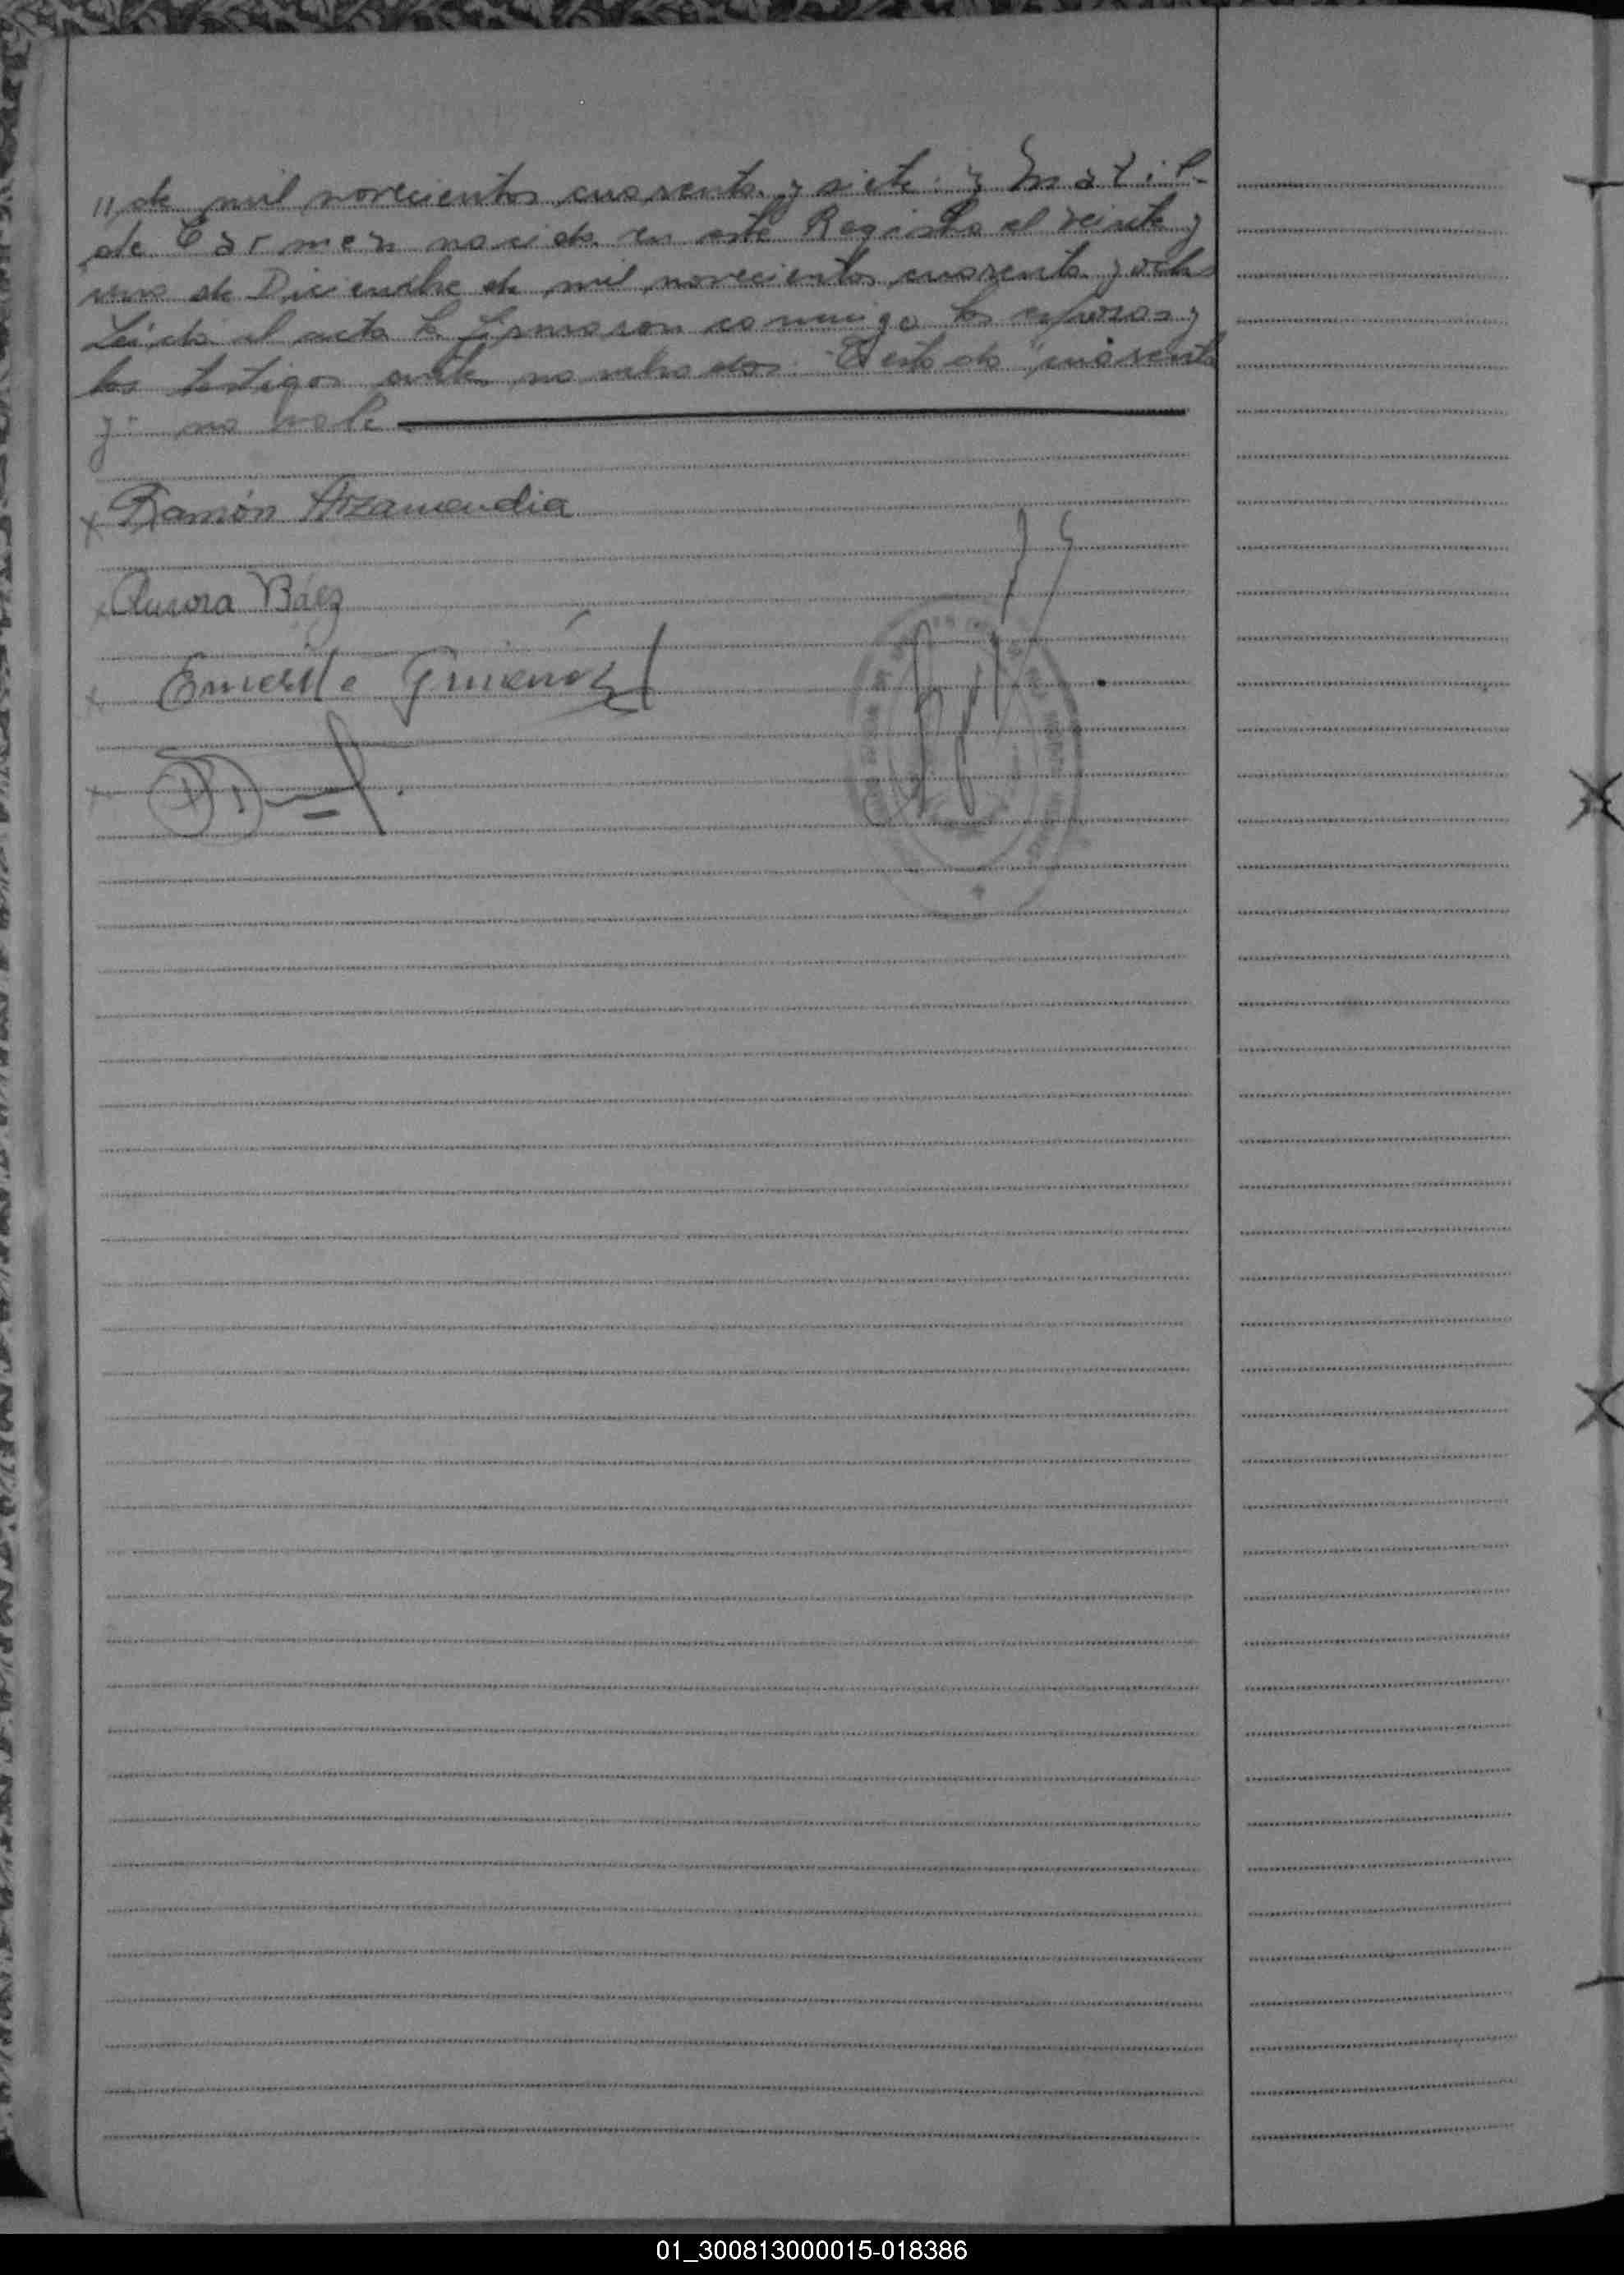 // de mil novecientos cuarenta y siete. y Matil-
de Carmen nacida en este Registro el veinte y
uno de Diciembre de mil novecientos cuarenta y ocho
Leida el acta la firmaron conmigo los esposos y
los testigos antes nombrados. Testado "cuarenta
y" no vale
x Ramón Arzamendia
x Aurora Báez
x Ernesto Gimenez
x
01_300813000015-018386